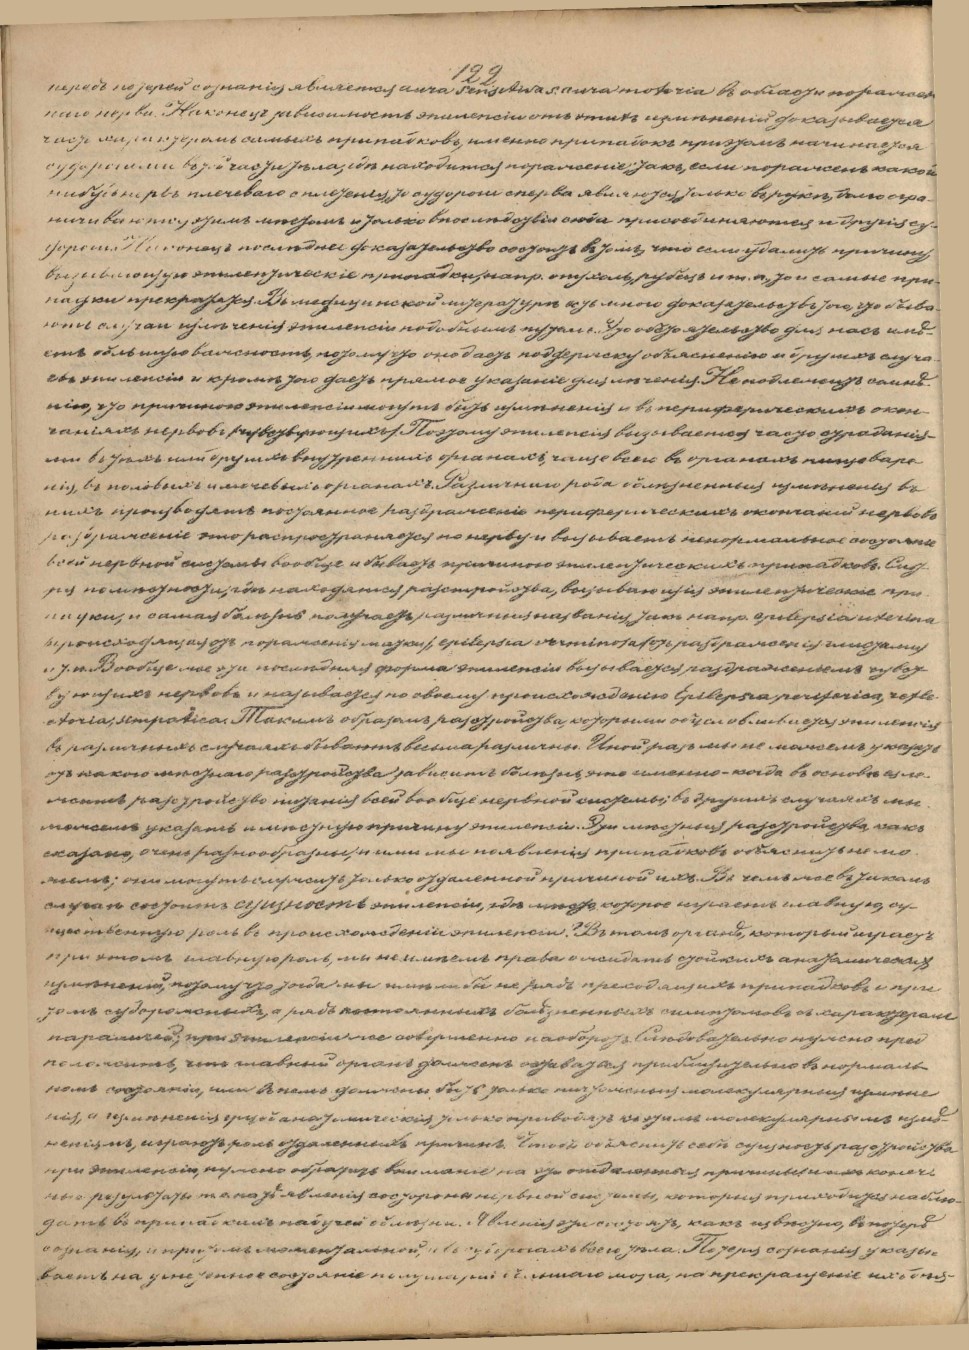 122
передъ потерей сознанія является aura sensitiva s. aura motoria въ области поражен-
наго нерва. Наконецъ зависимость эпилепсіи отъ этихъ измѣненій доказывается
часто характеромъ самыхъ припадковъ, именно припадокъ при этомъ начинается
судорогами въ той части тѣла, гдѣ находится пораженіе; такъ, если пораженъ какой
нибудь нервъ плечеваго сплетенія, то судороги сперва являются только въ рукѣ,
ничиваются этимъ мѣстомъ и только впослѣдствіи сюда присоединяются и другія су-
дороги. Наконецъ последнее доказательство состоитъ въ томъ, что если удалить причину
вызывающую эпилептическіе припадки, напр. опухоль, рубецъ и т. д., то и самые при-
падки прекратятся. Въ медицинской литературѣ есть много доказательствъ того, что быва-
ютъ случаи излѣченія эпилепсіи подобнымъ путемъ. Это обстоятельство для насъ имѣ-
етъ большую важность, потому что оно даетъ поддержку объясненію и другихъ случа-
евъ эпилепсіи и кромѣ того даетъ прямое указаніе для лѣченія. Не подлежитъ сомнѣ-
нію, что причиною эпилепсіи могутъ быть измѣненія и въ периферическихъ окон-
чаніяхъ нервовъ (чувствующихъ). Поэтому эпилепсія вызывается часто страданія-
ми въ тѣхъ или другихъ внутреннихъ органахъ, чаще всего въ органахъ пищеваре-
нія, въ половыхъ и мочевыхъ органахъ. Различнаго рода болѣзненныя измѣненія въ
нихъ производятъ постоянное раздраженіе периферическихъ окончаній нервовъ
раздраженіе это распространяется по нерву и вызываетъ ненормальное состояніе
всей нервной системы вообще и бываетъ причиною эпилептическихъ припадковъ. Смот-
ря по мѣстности, гдѣ находятся разстройства, вызывающія эпилептическіе при-
падки, и самая болѣзнь получаетъ различныя названія, такъ напр. epilepsia uterina
(происходящая отъ пораженія матки), epilepsia verminosa (отъ раздраженія глистами)
и т. п. Вообще же эта послѣдняя форма эпилепсіи вызывается раздраженіемъ чувст-
вующихъ нервовъ и называется по своему происхожденію Epilepsia periferica, refle-
ctoria, simpatica. Такимъ образомъ разстройства, которыми обусловливается эпилепсія
въ различныхъ случаяхъ бываютъ весьма различны. Иной разъ мы не можемъ указать
отъ какого мѣстнаго разстройства зависитъ болѣзнь, это именно – когда въ основѣ ея ле-
житъ разстройство питанія всей вообще нервной системы; въ другихъ случаяхъ мы
можемъ указать и мѣстную причину эпилепсіи. Эти мѣстныя разстройства, какъ
сказано, очень разнообразны, и ими мы появленія припадковъ объяснить не мо-
жемъ; они могутъ служить только отдаленной причиной ихъ. Въ чемъ же въ такомъ
случаѣ состоитъ сущность эпилепсіи, гдѣ мѣсто, которое играетъ главную, су-
щественную роль въ происхожденіи эпилепсіи? Въ томъ органѣ, который играетъ
при этомъ главную роль, мы не имѣемъ права ожидать стойкихъ анатомическихъ
измѣненій, потому что тогда мы имѣли бы не рядъ преходящихъ припадковъ и при
томъ судорожныхъ, а рядъ постоянныхъ болѣзненныхъ симптомовъ съ характеромъ
параличей; при эпилепсіи же совершенно наоборотъ. Слѣдовательно нужно пред-
положить, что главный органъ долженъ оставаться приблизительно въ нормаль-
номъ состояніи, или въ немъ должны быть только ничтожныя молекулярныя измѣне-
нія, а измѣненія грубо анатомическія только приводятъ къ этимъ молекулярнымъ измѣ-
неніямъ, играютъ роль отдаленныхъ причинъ. Чтобы объяснить себѣ сущность разстройства
при эпилепсіи, нужно обратить вниманіе на эти отдаленныя причины и ихъ конеч-
ные результаты т. е. на тѣ явленія со стороны нервной системы, которыя приходится наблю-
дать въ припадкахъ падучей болѣзни. Явленія эти состоятъ, какъ извѣстно, въ потерѣ
сознанія, и притомъ моментальной, и въ судорогахъ всего тѣла. Потеря сознанія указы-
ваетъ на угнетенное состояніе полушарій большаго мозга, на прекращеніе ихъ дѣя-